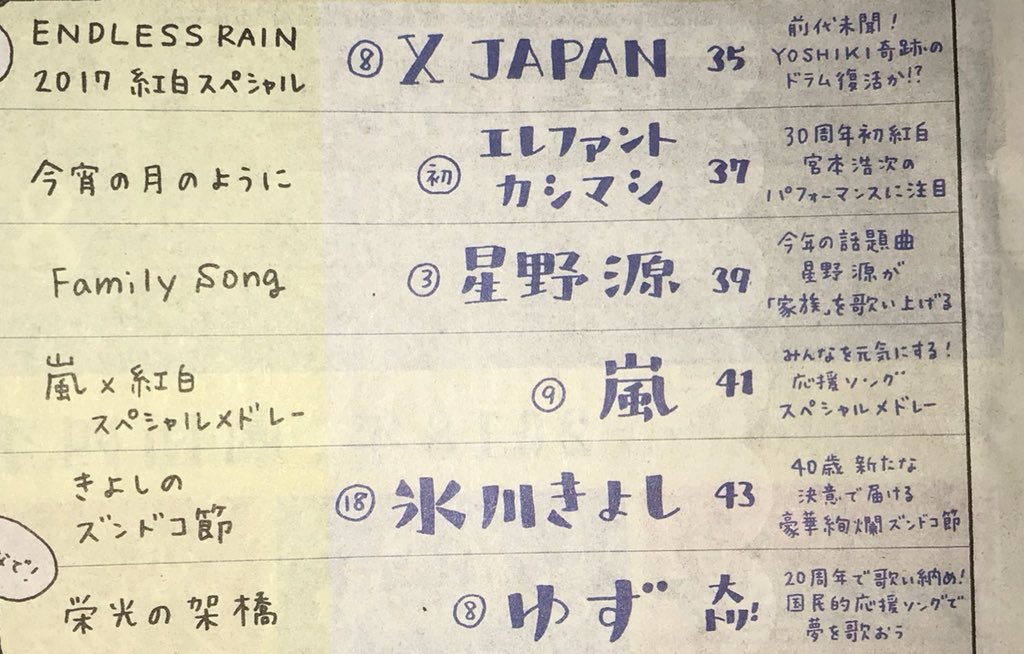 ENDLESS RAIN
2017 紅白スペシャル
⑧ X JAPAN 35
前代未聞!
YOSHIKI奇跡の
ドラム復活か!?
今宵の月のように
初 エレファント
カシマシ 37
30周年初紅白
宮本浩次の
パフォーマンスに注目
Family Song
③ 星野源 39
今年の話題曲
星野源が
「家族」を歌い上げる
嵐×紅白
スペシャルメドレー
⑨ 嵐 41
みんなを元気にする!
応援ソング
スペシャルメドレー
きよしの
ズンドコ節
⑱ 氷川きよし 43
40歳 新たな
決意で届ける
豪華絢爛ズンドコ節
栄光の架橋
⑧ ゆず 大
トリ!
20周年で歌い納め!
国民的応援ソングで
夢を歌おう